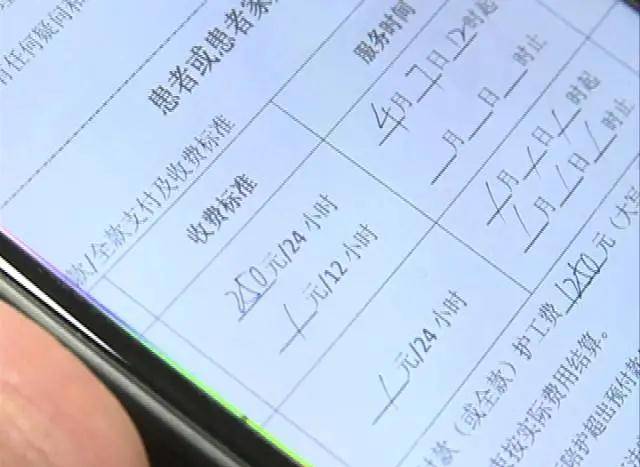 任何疑问
患者或患者家
款/全款支付及收费标准
收费标准
服务时间
250元/24小时
/元/12小时
4月7日12时起
月 日 时止
/元/24小时
/月/日/时起
/月/日/时止
款（或全款）护工费1250元（大写
按实际费用结算。
护超出预付款